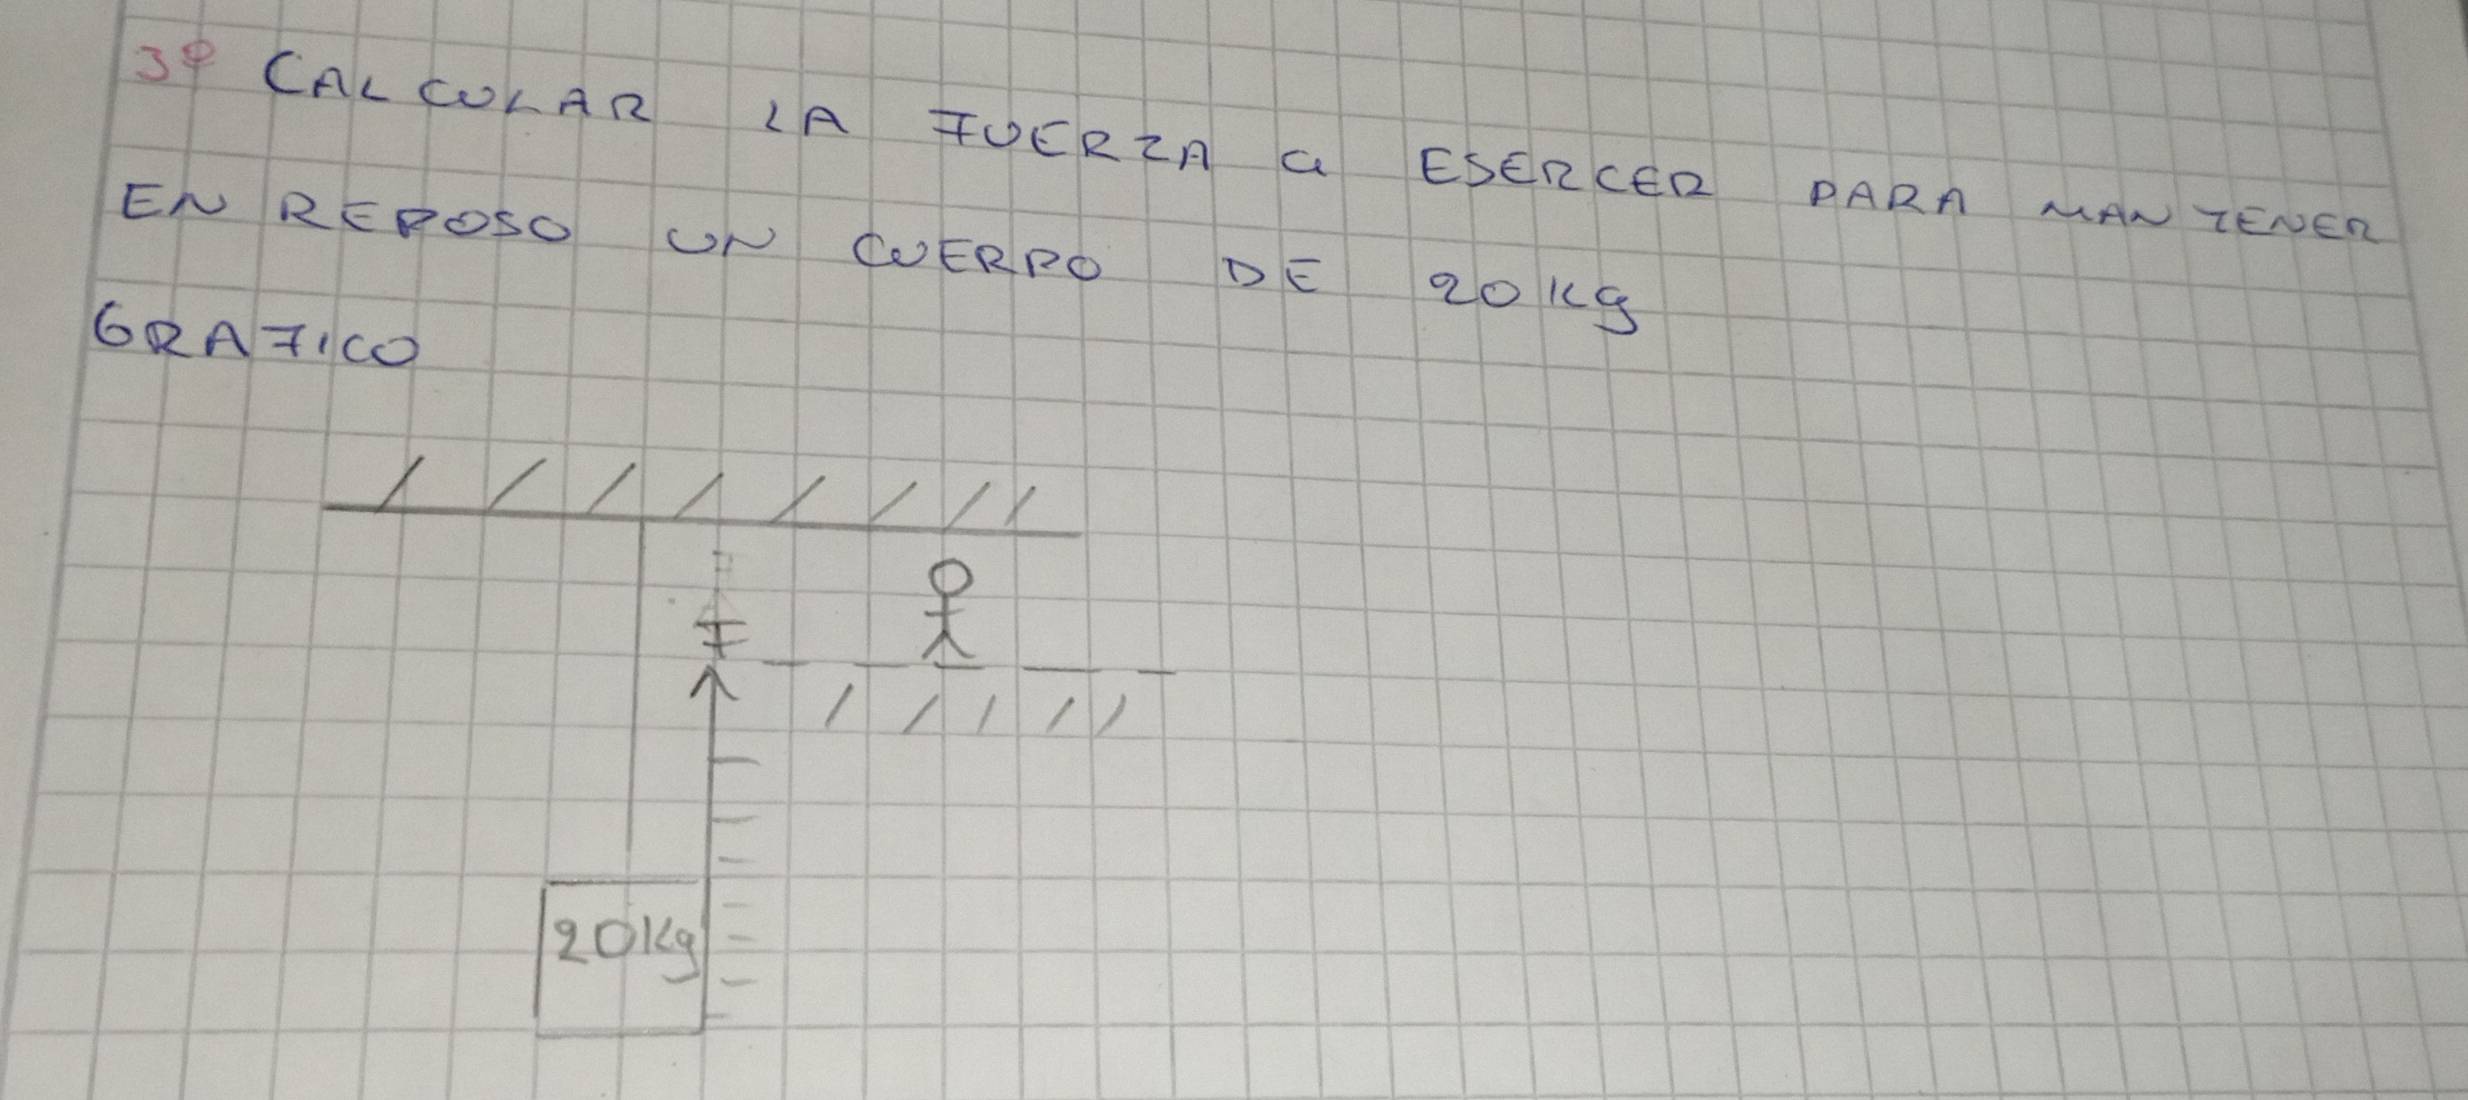 3º CALCULAR LA FUERZA a ESERCER PARA MANTENER
EN REPOSO UN CUERPO DE 20 Kg
GRAFICO
F
20Kg